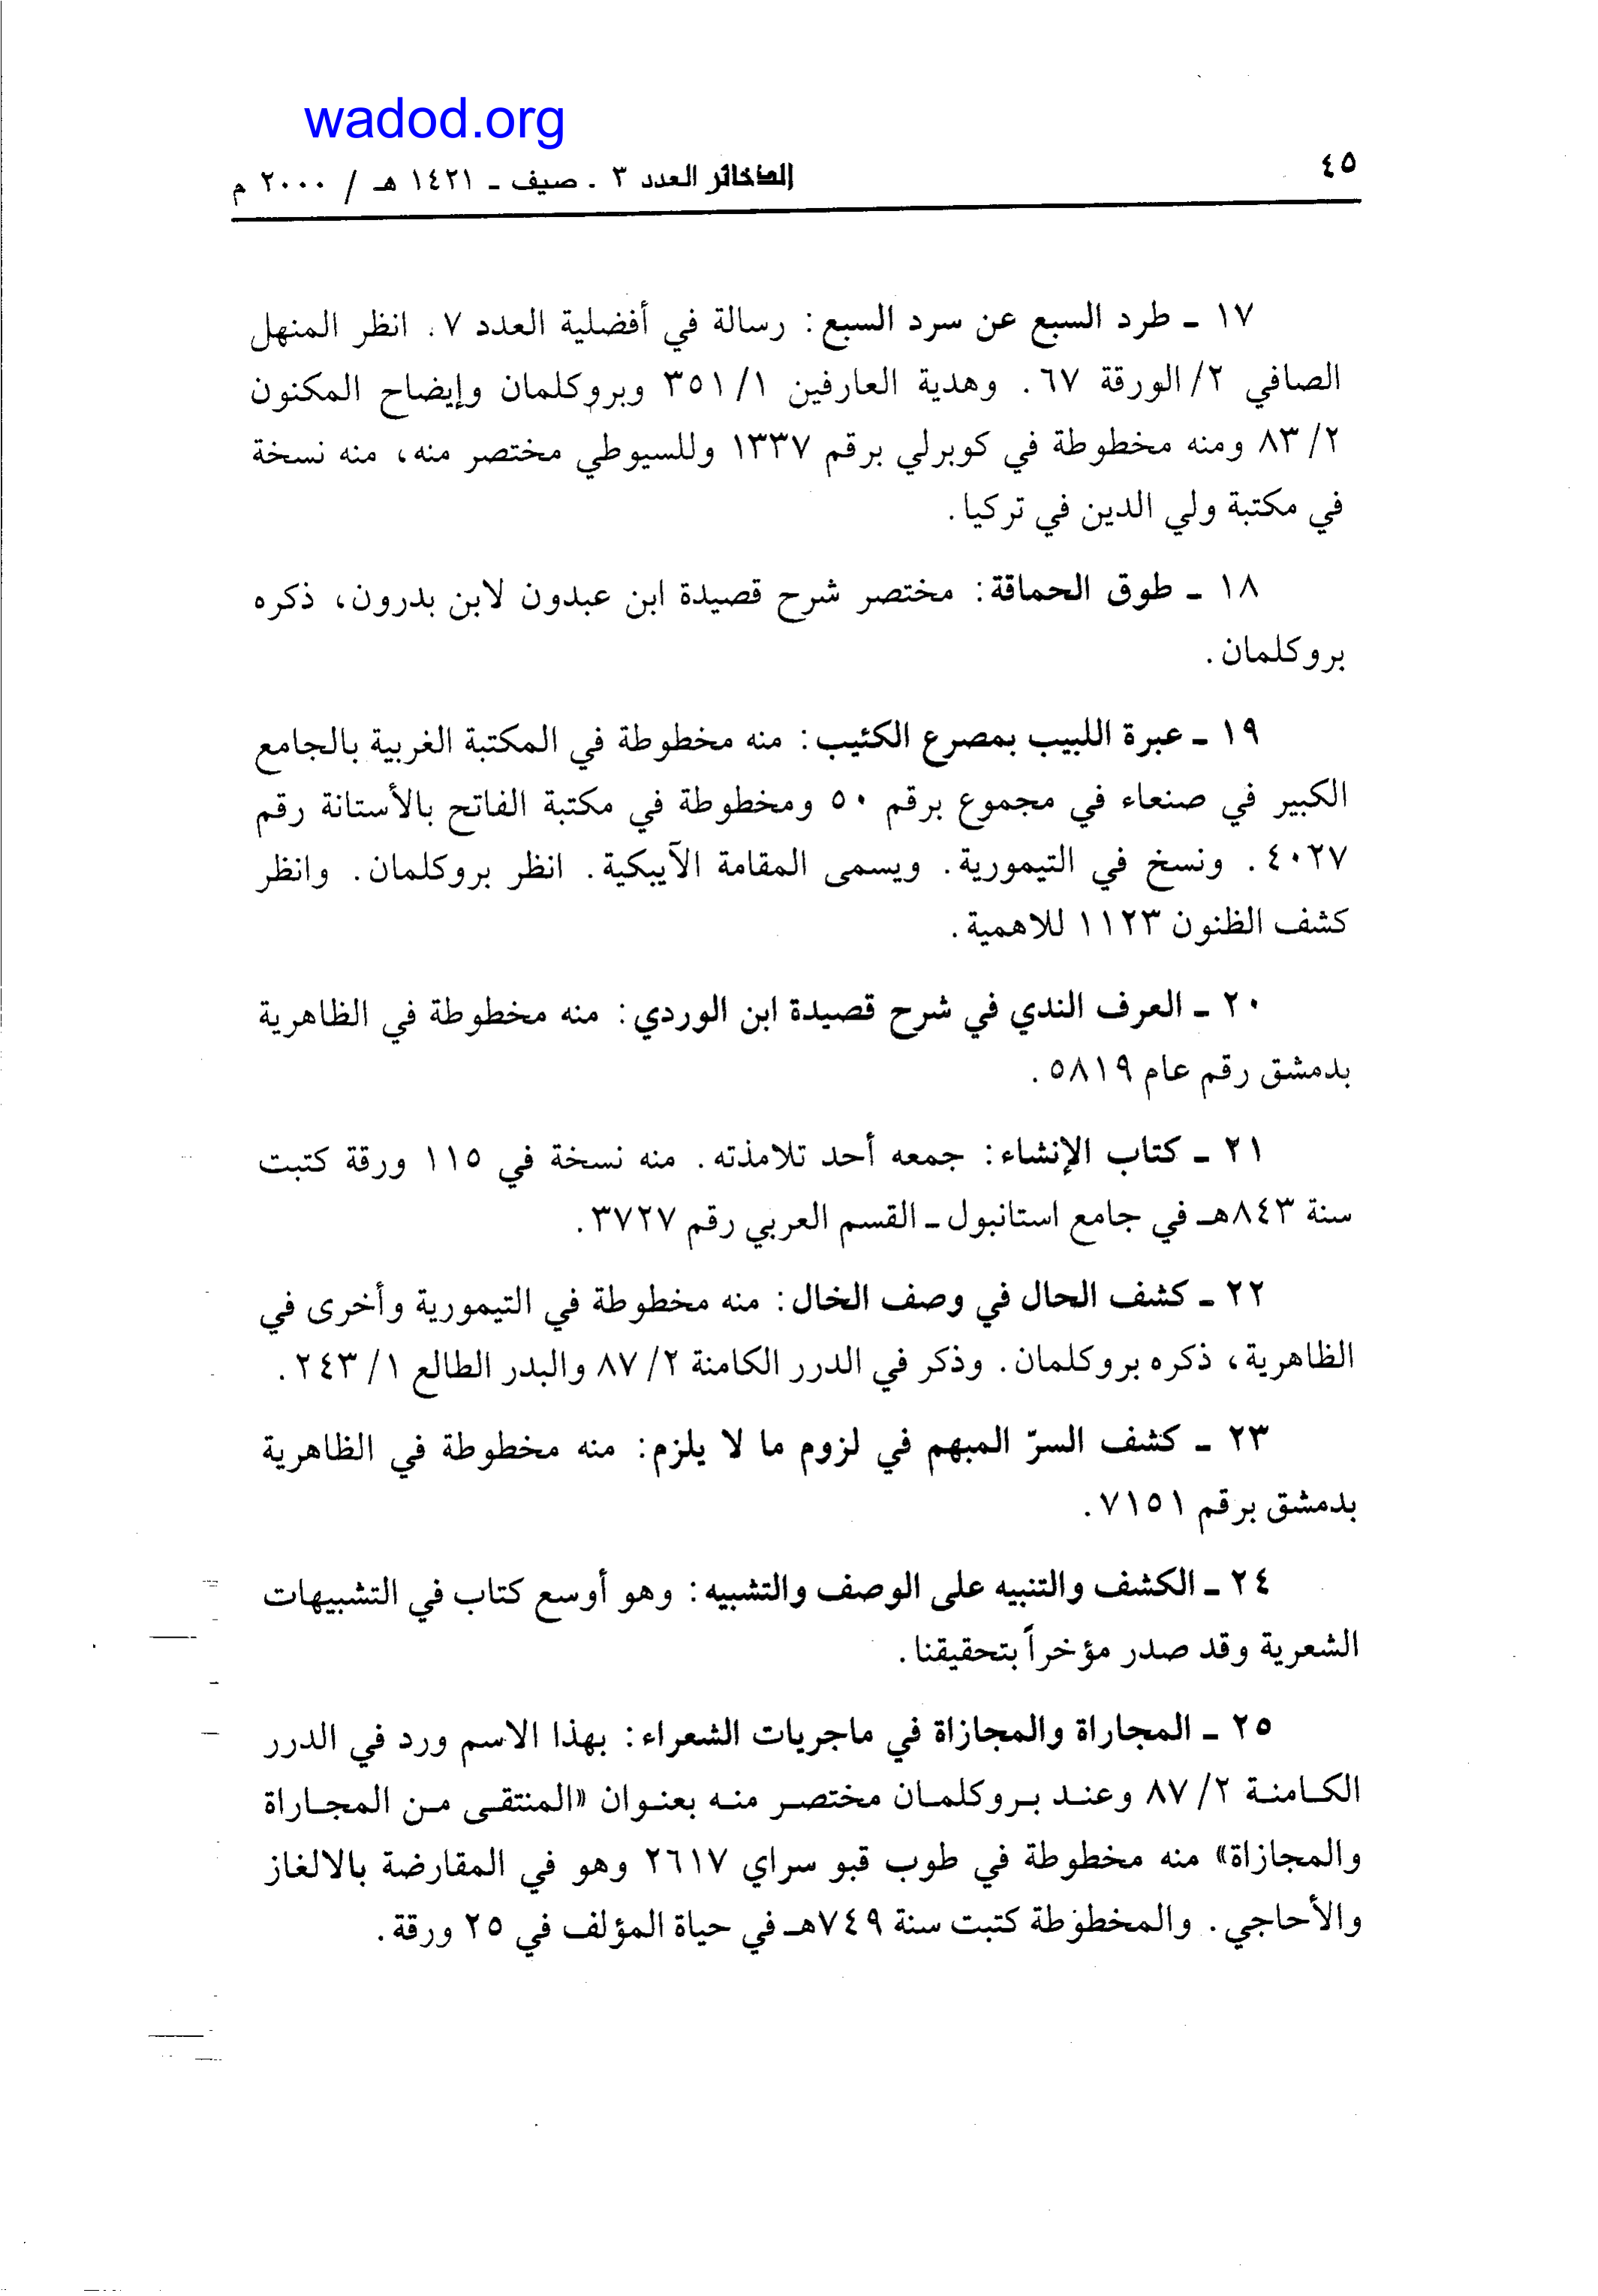 wadod.org
٤٥
الذخائر العدد ٣ . صيف ـ ١٤٢١ هـ / ٢٠٠٠ م
١٧ ـ طرد السبع عن سرد السبع: رسالة في أفضلية العدد ٧. انظر المنهل
الصافي ٢/ الورقة ٦٧. وهدية العارفين ١/ ٣٥١ وبروكلمان وإيضاح المكنون
٢/ ٨٣ ومنه مخطوطة في كوبرلي برقم ١٣٣٧ وللسيوطي مختصر منه، منه نسخة
في مكتبة ولي الدين في تركيا.
١٨ ـ طوق الحماقة: مختصر شرح قصيدة ابن عبدون لابن بدرون، ذكره
بروكلمان.
١٩ ـ عبرة اللبيب بمصرع الكئيب: منه مخطوطة في المكتبة الغربية بالجامع
الكبير في صنعاء في مجموع برقم ٥٠ ومخطوطة في مكتبة الفاتح بالأستانة رقم
٤٠٢٧. ونسخ في التيمورية. ويسمى المقامة الآيبكية. انظر بروكلمان. وانظر
كشف الظنون ١١٢٣ للاهمية.
٢٠ ـ العرف الندي في شرح قصيدة ابن الوردي: منه مخطوطة في الظاهرية
بدمشق رقم عام ٥٨١٩.
٢١ ـ كتاب الإنشاء: جمعه أحد تلامذته. منه نسخة في ١١٥ ورقة كتبت
سنة ٨٤٣هـ في جامع استانبول ـ القسم العربي رقم ٣٧٢٧.
٢٢ ـ كشف الحال في وصف الخال: منه مخطوطة في التيمورية وأخرى في
الظاهرية، ذكره بروكلمان. وذكر في الدرر الكامنة ٢/ ٨٧ والبدر الطالع ١/ ٢٤٣.
٢٣ ـ كشف السرّ المبهم في لزوم ما لا يلزم: منه مخطوطة في الظاهرية
بدمشق برقم ٧١٥١.
٢٤ ـ الكشف والتنبيه على الوصف والتشبيه: وهو أوسع كتاب في التشبيهات
الشعرية وقد صدر مؤخراً بتحقيقنا.
٢٥ ـ المجاراة والمجازاة في ماجريات الشعراء: بهذا الاسم ورد في الدرر
الكامنة ٢/ ٨٧ وعند بروكلمان مختصر منه بعنوان «المنتقى من المجاراة
والمجازاة» منه مخطوطة في طوب قبو سراي ٢٦١٧ وهو في المقارضة بالالغاز
والأحاجي. والمخطوطة كتبت سنة ٧٤٩هـ في حياة المؤلف في ٢٥ ورقة.